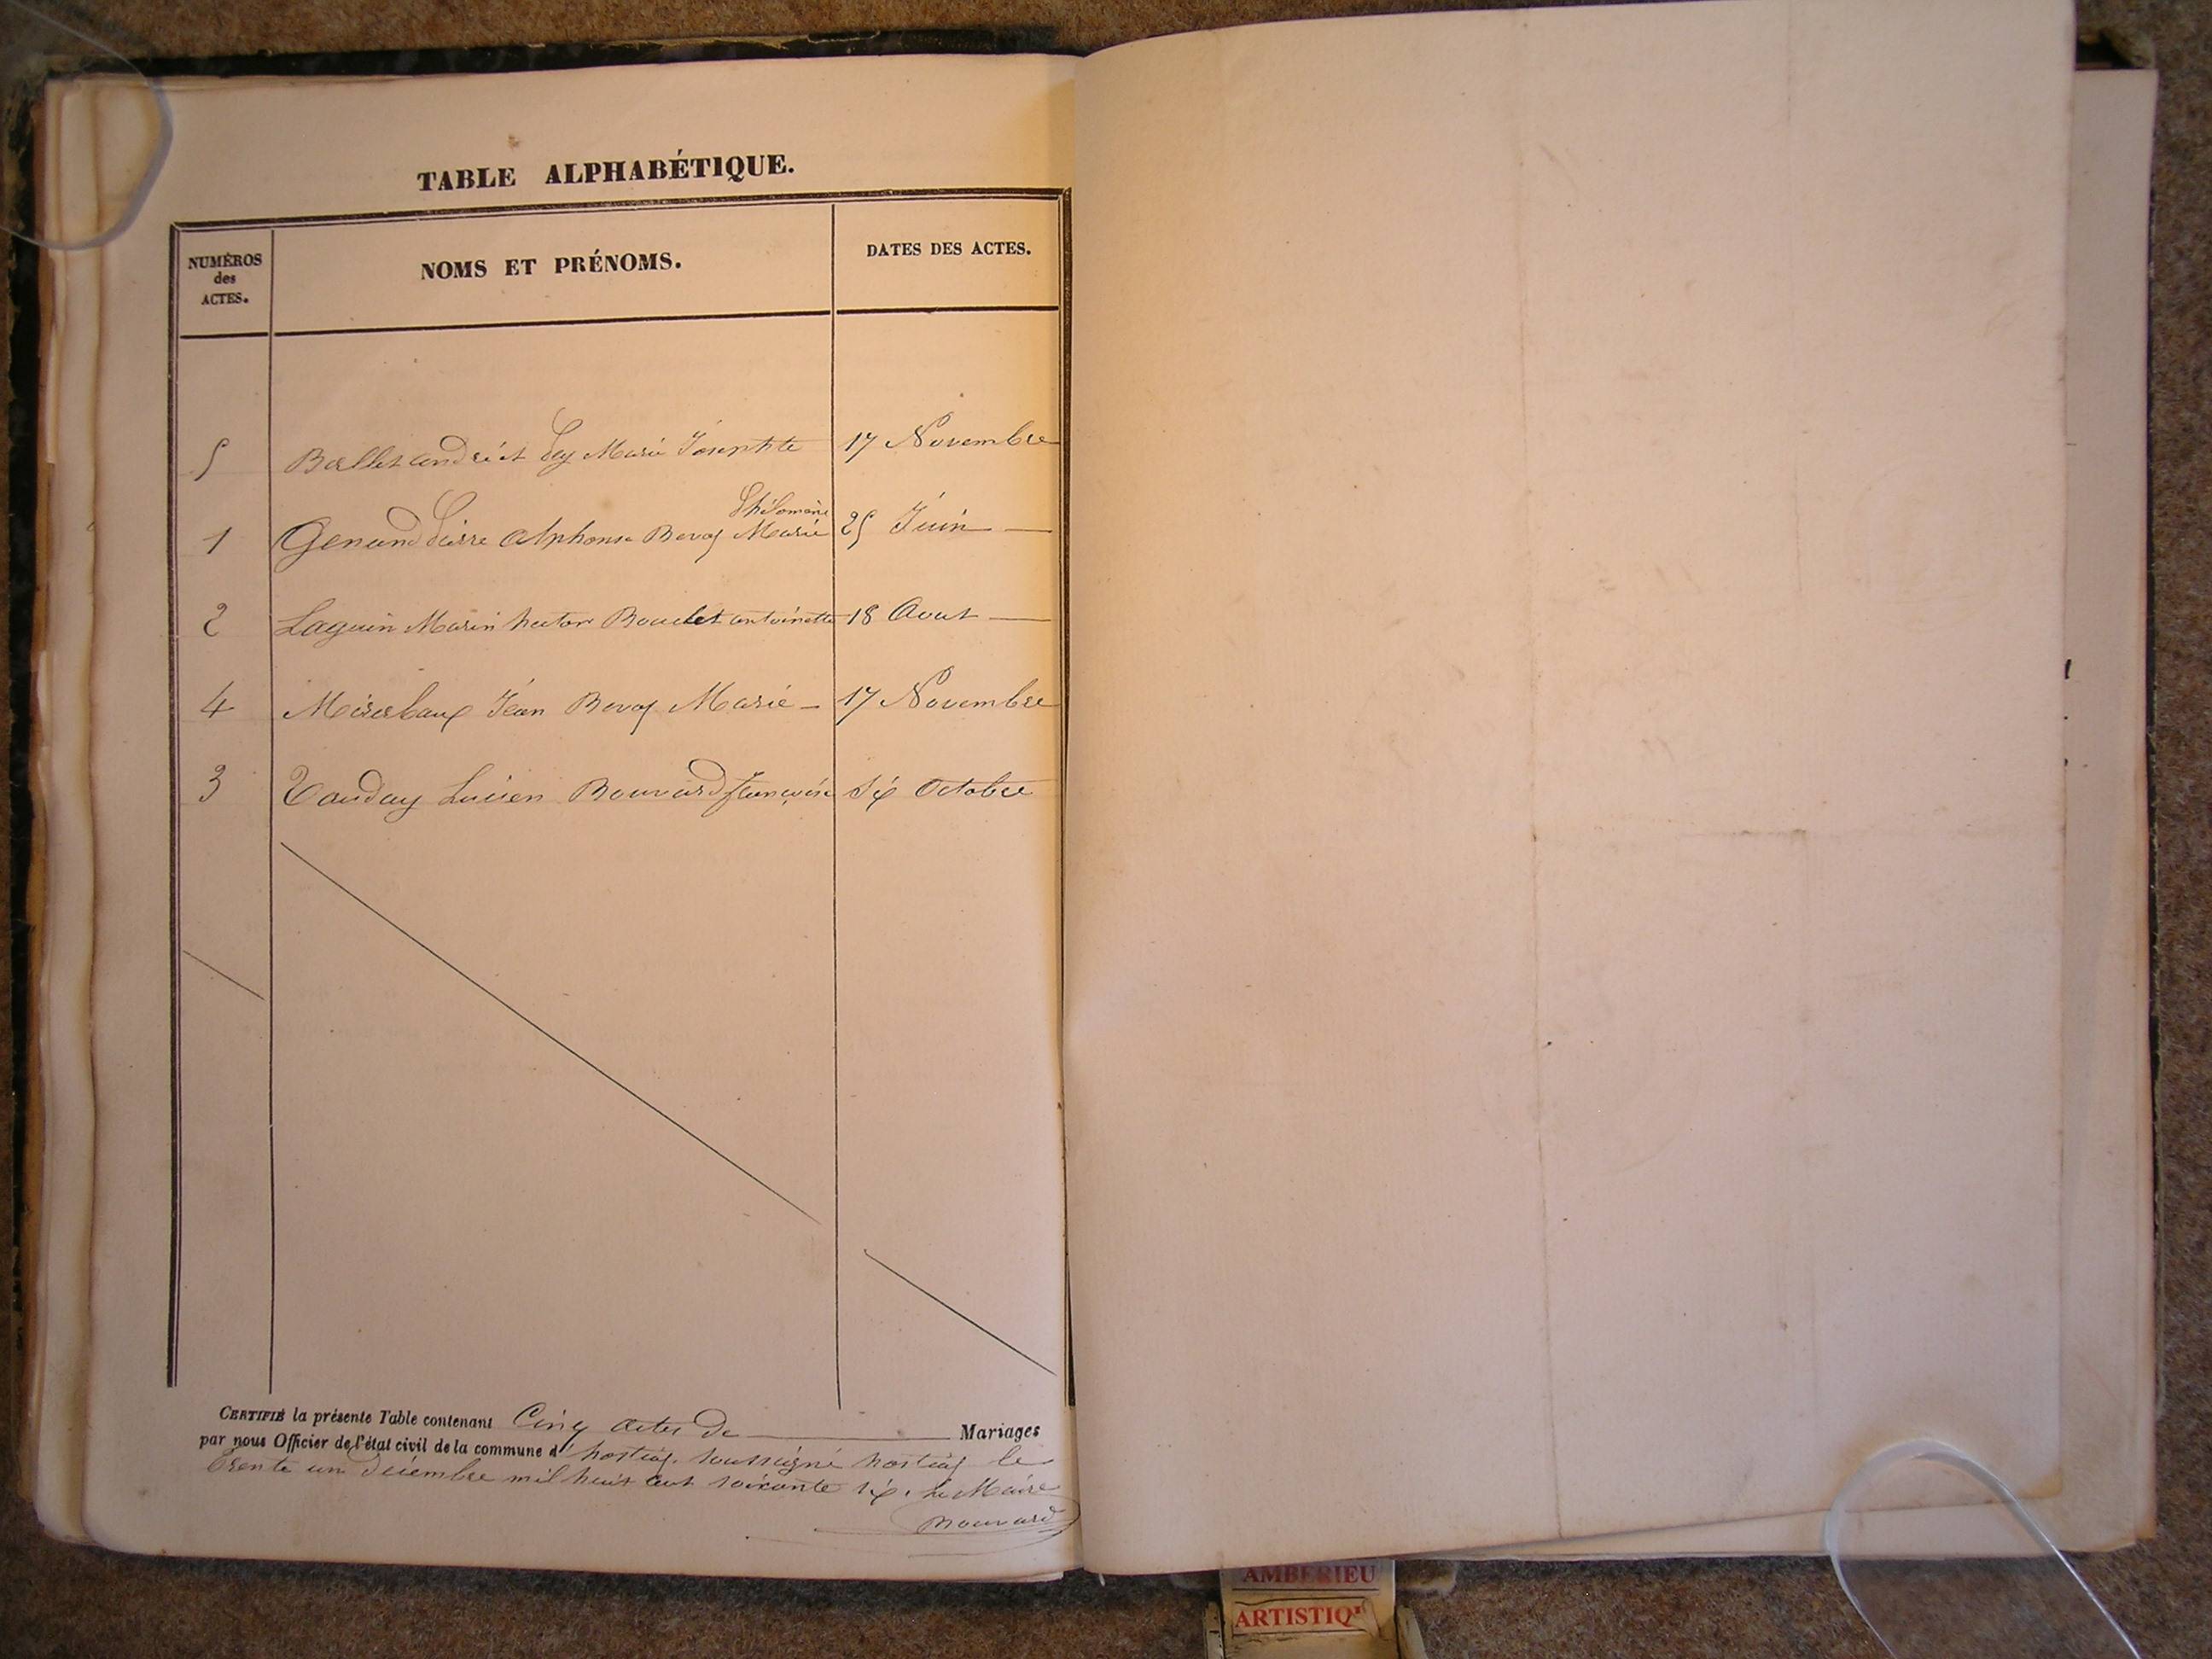 TABLE ALPHABÉTIQUE.
NUMÉROS
des
ACTES.
NOMS ET PRÉNOMS.
DATES DES ACTES.
5 Ballet andré et Marie Josephte 17 Novembre
Philomène
1 Genand Pierre alphonse Bevoz Marie 25 Juin —
2 Laguin Marin hector Bouclet antoinette 18 Aout —
4 Jean Bevoz Marie – 17 Novembre
3 Tanday Lucien Bouvard françoise Six Octobre
CERTIFIÉ la présente Table contenant Cinq actes de — Mariages
par nous Officier de l'état civil de la commune d'hostiaz soussigné hostiaz le
trente un Décembre mil huit cent soixante six. Le Maire
Bouvard
AMBERIEU
ARTISTIQ